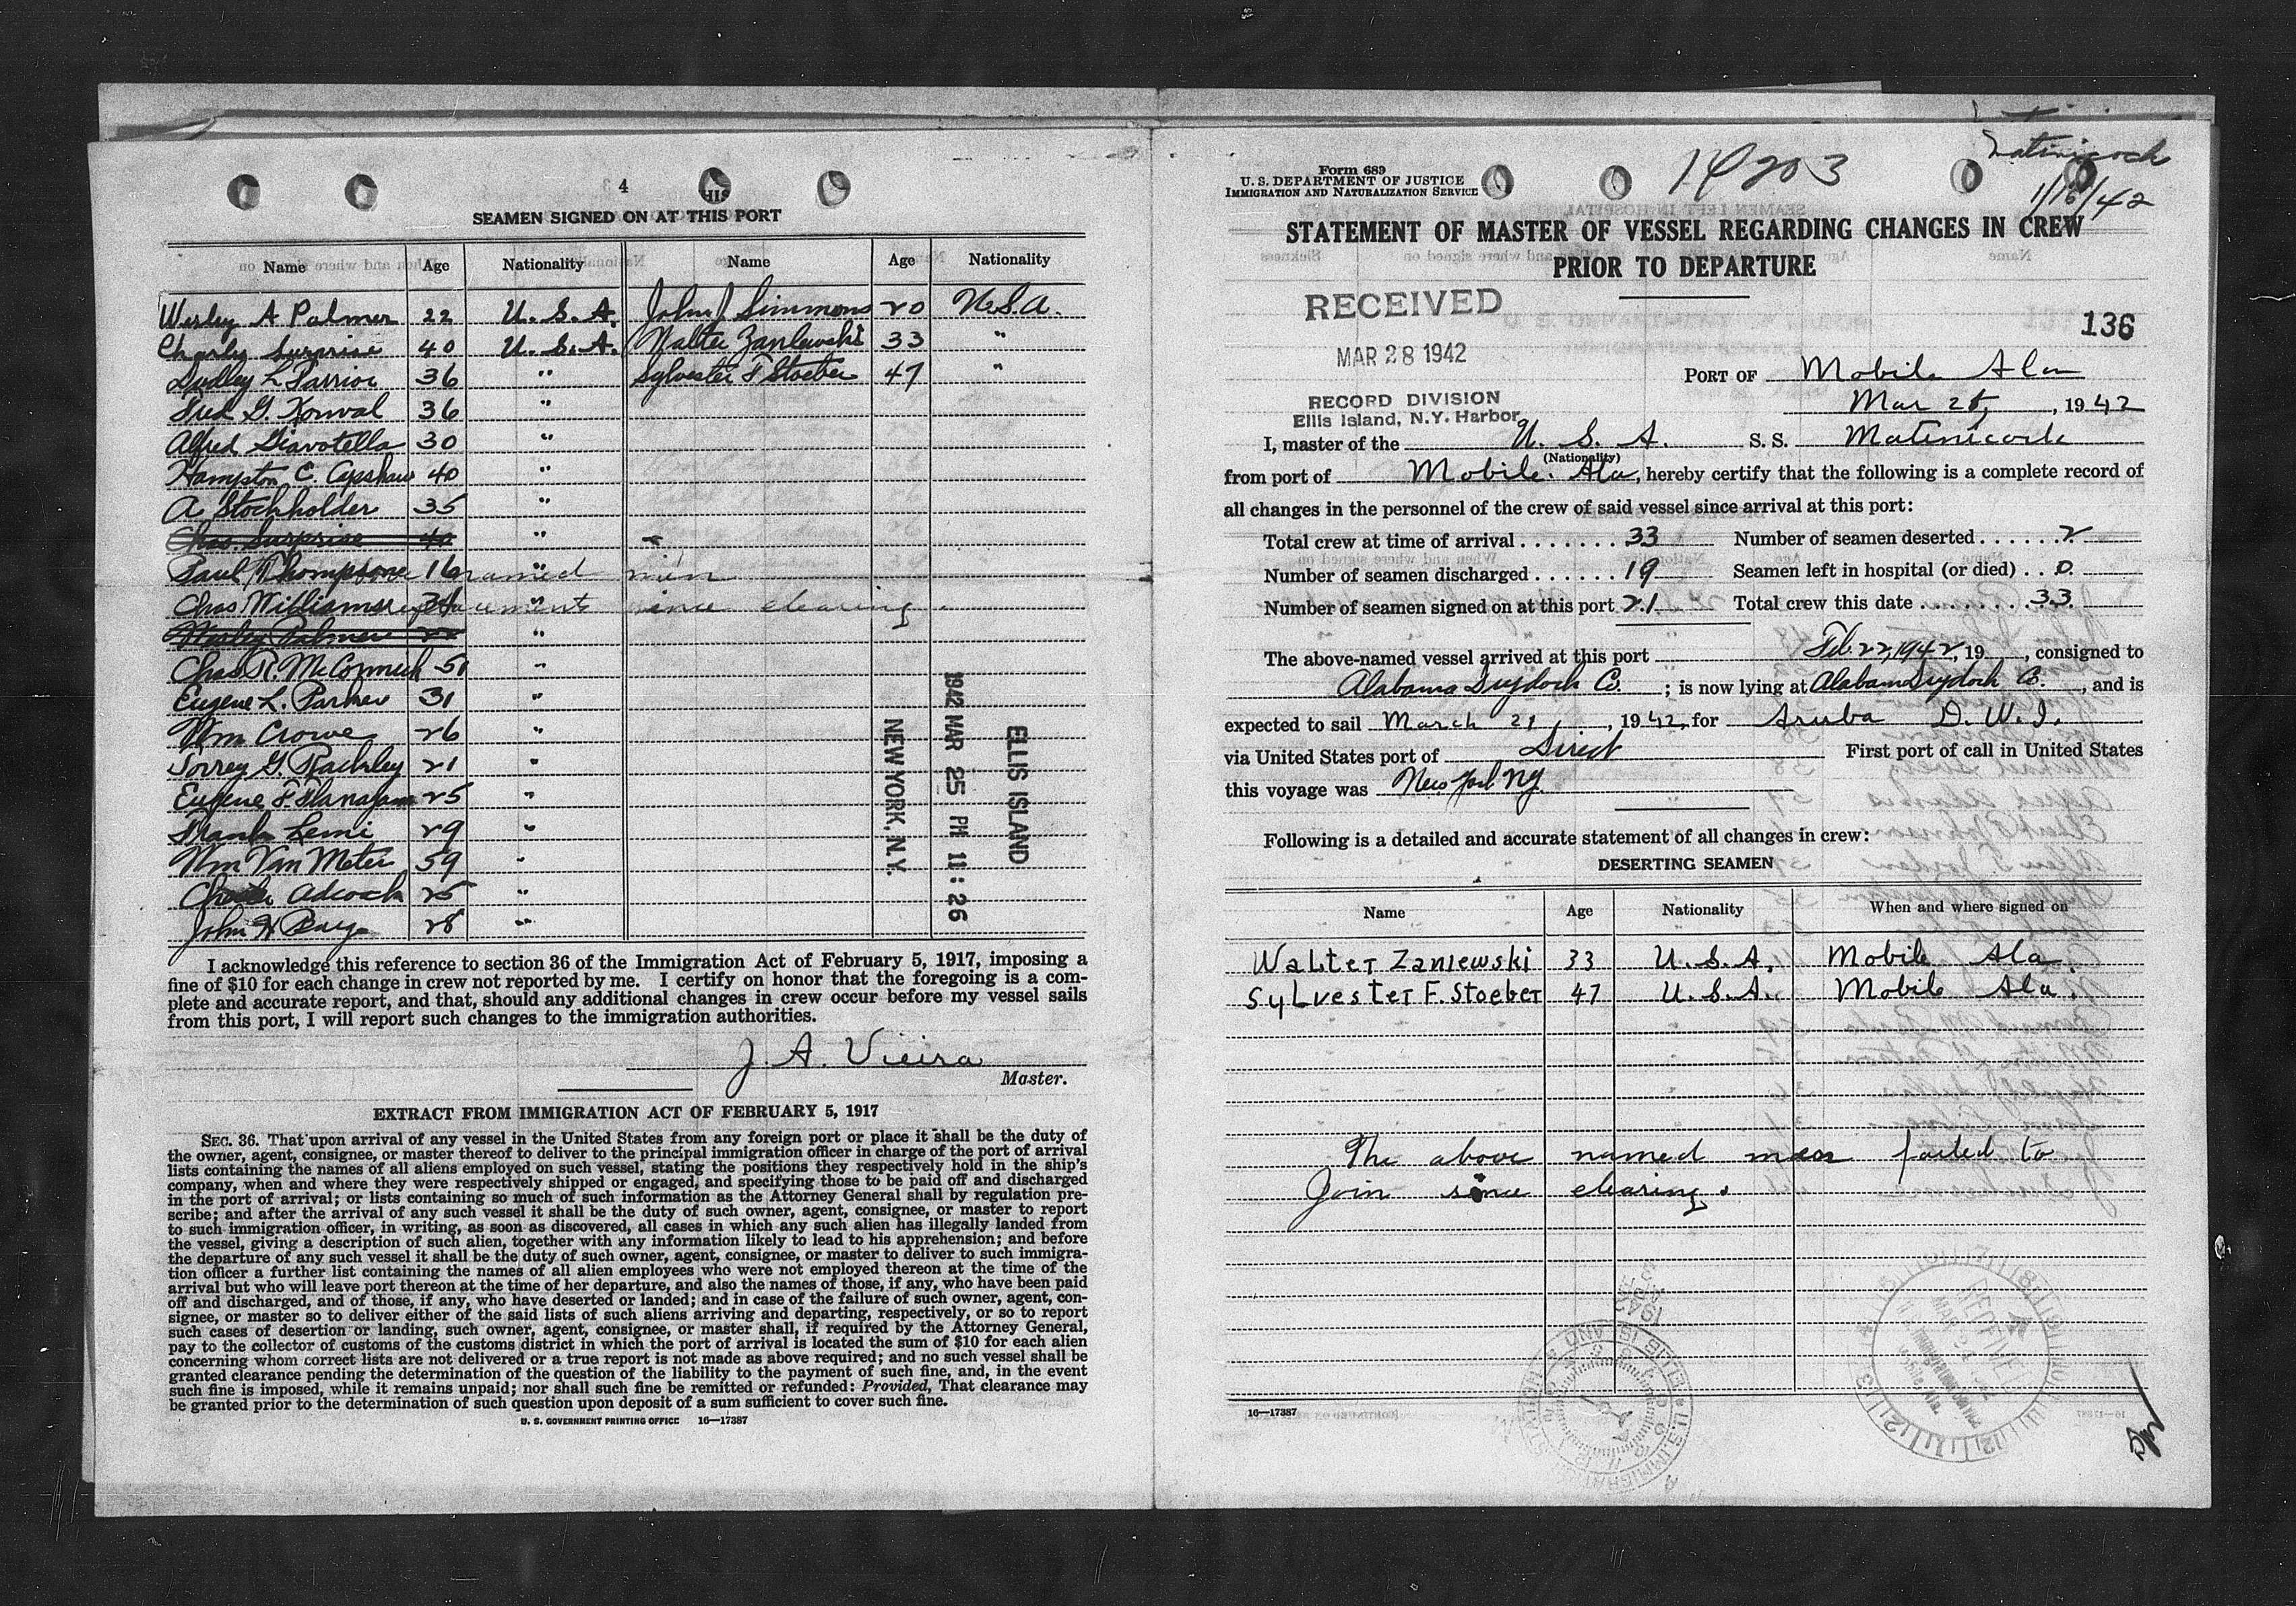 4
SEAMEN SIGNED ON AT THIS PORT
Name Age Nationality Name Age Nationality
Wesley A Palmer 22 U. S. A. John J Simmons 20 U.S.A.
Charly Surprise 40 U. S. A. Walter Zaniewski 33 "
Dudley L 36 " Sylvester F Stoeber 47 "
Fred G. Konval 36 "
Alfred Giavotella 30 "
Hampton C. Capshaw 40 "
A Stockholder 35 "
Chas. Surprise 40 "
Paul Thompson 16 " named men
Chas Williams " since clearing.
Wesley Palmer 22 "
Chas R. McCormick 51 "
Eugene L. Parker 31 "
Wm Crowe 26 "
Torrey G. Rackley 21 "
Eugene F. Flanagan 25 "
Frank Lemi 29 "
Wm Van Meter 59 "
Adcock 25 "
John H 28 "
1942 MAR 25 PM 11:26
ELLIS ISLAND
NEW YORK, N.Y.
I acknowledge this reference to section 36 of the Immigration Act of February 5, 1917, imposing a
fine of $10 for each change in crew not reported by me. I certify on honor that the foregoing is a com-
plete and accurate report, and that, should any additional changes in crew occur before my vessel sails
from this port, I will report such changes to the immigration authorities.
J. A. Vieira
Master.
EXTRACT FROM IMMIGRATION ACT OF FEBRUARY 5, 1917
SEC. 36. That upon arrival of any vessel in the United States from any foreign port or place it shall be the duty of
the owner, agent, consignee, or master thereof to deliver to the principal immigration officer in charge of the port of arrival
lists containing the names of all aliens employed on such vessel, stating the positions they respectively hold in the ship's
company, when and where they were respectively shipped or engaged, and specifying those to be paid off and discharged
in the port of arrival; or lists containing so much of such information as the Attorney General shall by regulation pre-
scribe; and after the arrival of any such vessel it shall be the duty of such owner, agent, consignee, or master to report
to such immigration officer, in writing, as soon as discovered, all cases in which any such alien has illegally landed from
the vessel, giving a description of such alien, together with any information likely to lead to his apprehension; and before
the departure of any such vessel it shall be the duty of such owner, agent, consignee, or master to deliver to such immigra-
tion officer a further list containing the names of all alien employees who were not employed thereon at the time of the
arrival but who will leave port thereon at the time of her departure, and also the names of those, if any, who have been paid
off and discharged, and of those, if any, who have deserted or landed; and in case of the failure of such owner, agent, con-
signee, or master so to deliver either of the said lists of such aliens arriving and departing, respectively, or so to report
such cases of desertion or landing, such owner, agent, consignee, or master shall, if required by the Attorney General,
pay to the collector of customs of the customs district in which the port of arrival is located the sum of $10 for each alien
concerning whom correct lists are not delivered or a true report is not made as above required; and no such vessel shall be
granted clearance pending the determination of the question of the liability to the payment of such fine, and, in the event
such fine is imposed, while it remains unpaid; nor shall such fine be remitted or refunded: Provided, That clearance may
be granted prior to the determination of such question upon deposit of a sum sufficient to cover such fine.
U. S. GOVERNMENT PRINTING OFFICE 16—17387
Form 689
U. S. DEPARTMENT OF JUSTICE
IMMIGRATION AND NATURALIZATION SERVICE
14203
Matinicock
1/16/42
STATEMENT OF MASTER OF VESSEL REGARDING CHANGES IN CREW
PRIOR TO DEPARTURE
RECEIVED
MAR 28 1942
RECORD DIVISION
Ellis Island, N.Y. Harbor
136
PORT OF Mobile Ala
Mar 25, , 1942
I, master of the U. S. A. S. S. Matinicock
(Nationality)
from port of Mobile. Ala, hereby certify that the following is a complete record of
all changes in the personnel of the crew of said vessel since arrival at this port:
Total crew at time of arrival . . . . . . . 33 Number of seamen deserted . . . . . . 2
Number of seamen discharged . . . . . . 19 Seamen left in hospital (or died) . . 0
Number of seamen signed on at this port 21 Total crew this date . . . . . . . . 33
The above-named vessel arrived at this port Feb. 22, 1942, 19 , consigned to
Alabama Drydock Co. ; is now lying at Alabama Drydock Co. , and is
expected to sail March 21, , 1942, for Aruba D. W. I.
via United States port of Direct First port of call in United States
this voyage was New York NY.
Following is a detailed and accurate statement of all changes in crew:
DESERTING SEAMEN
Name Age Nationality When and where signed on
Walter Zaniewski 33 U. S. A. Mobile Ala.
Sylvester F. Stoeber 47 U. S. A. Mobile Ala.
The above named men failed to
Join since clearing.
16—17387